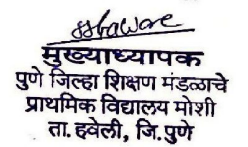 मुख्याध्यापक
पुणे जिल्हा शिक्षण मंडळाचे
प्राथमिक विद्यालय मोशी
ता. हवेली, जि. पुणे